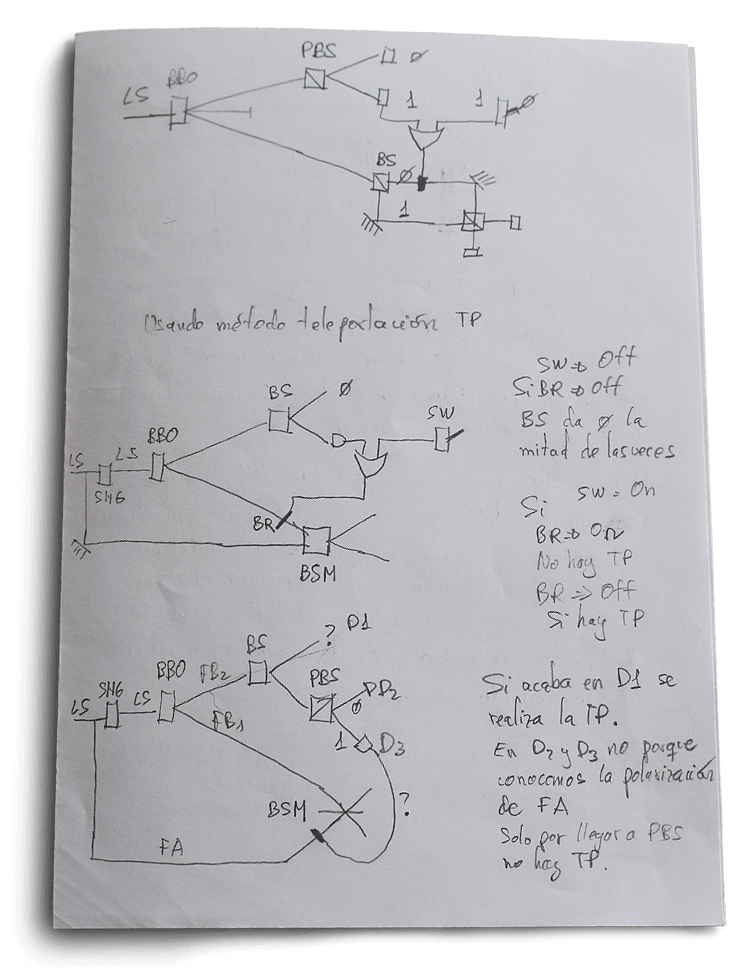 PBS
Ø
LS BBO
1 1 Ø
BS Ø
1
Usando método teleportación TP
SW → Off
Si BR → Off
BS da Ø la
mitad de las veces
BS Ø
SW
BBO
LS LS
SHG
BR
BSM
Si SW = On
BR → On
No hay TP
BR => Off
Si hay TP
? D1
BS
SHG BBO FB2 PBS D2
LS LS Ø
FB1 1 D3
BSM ?
FA
Si acaba en D1 se
realiza la TP.
En D2 y D3 no porque
conocemos la polarización
de FA
Solo por llegar a PBS
no hay TP.